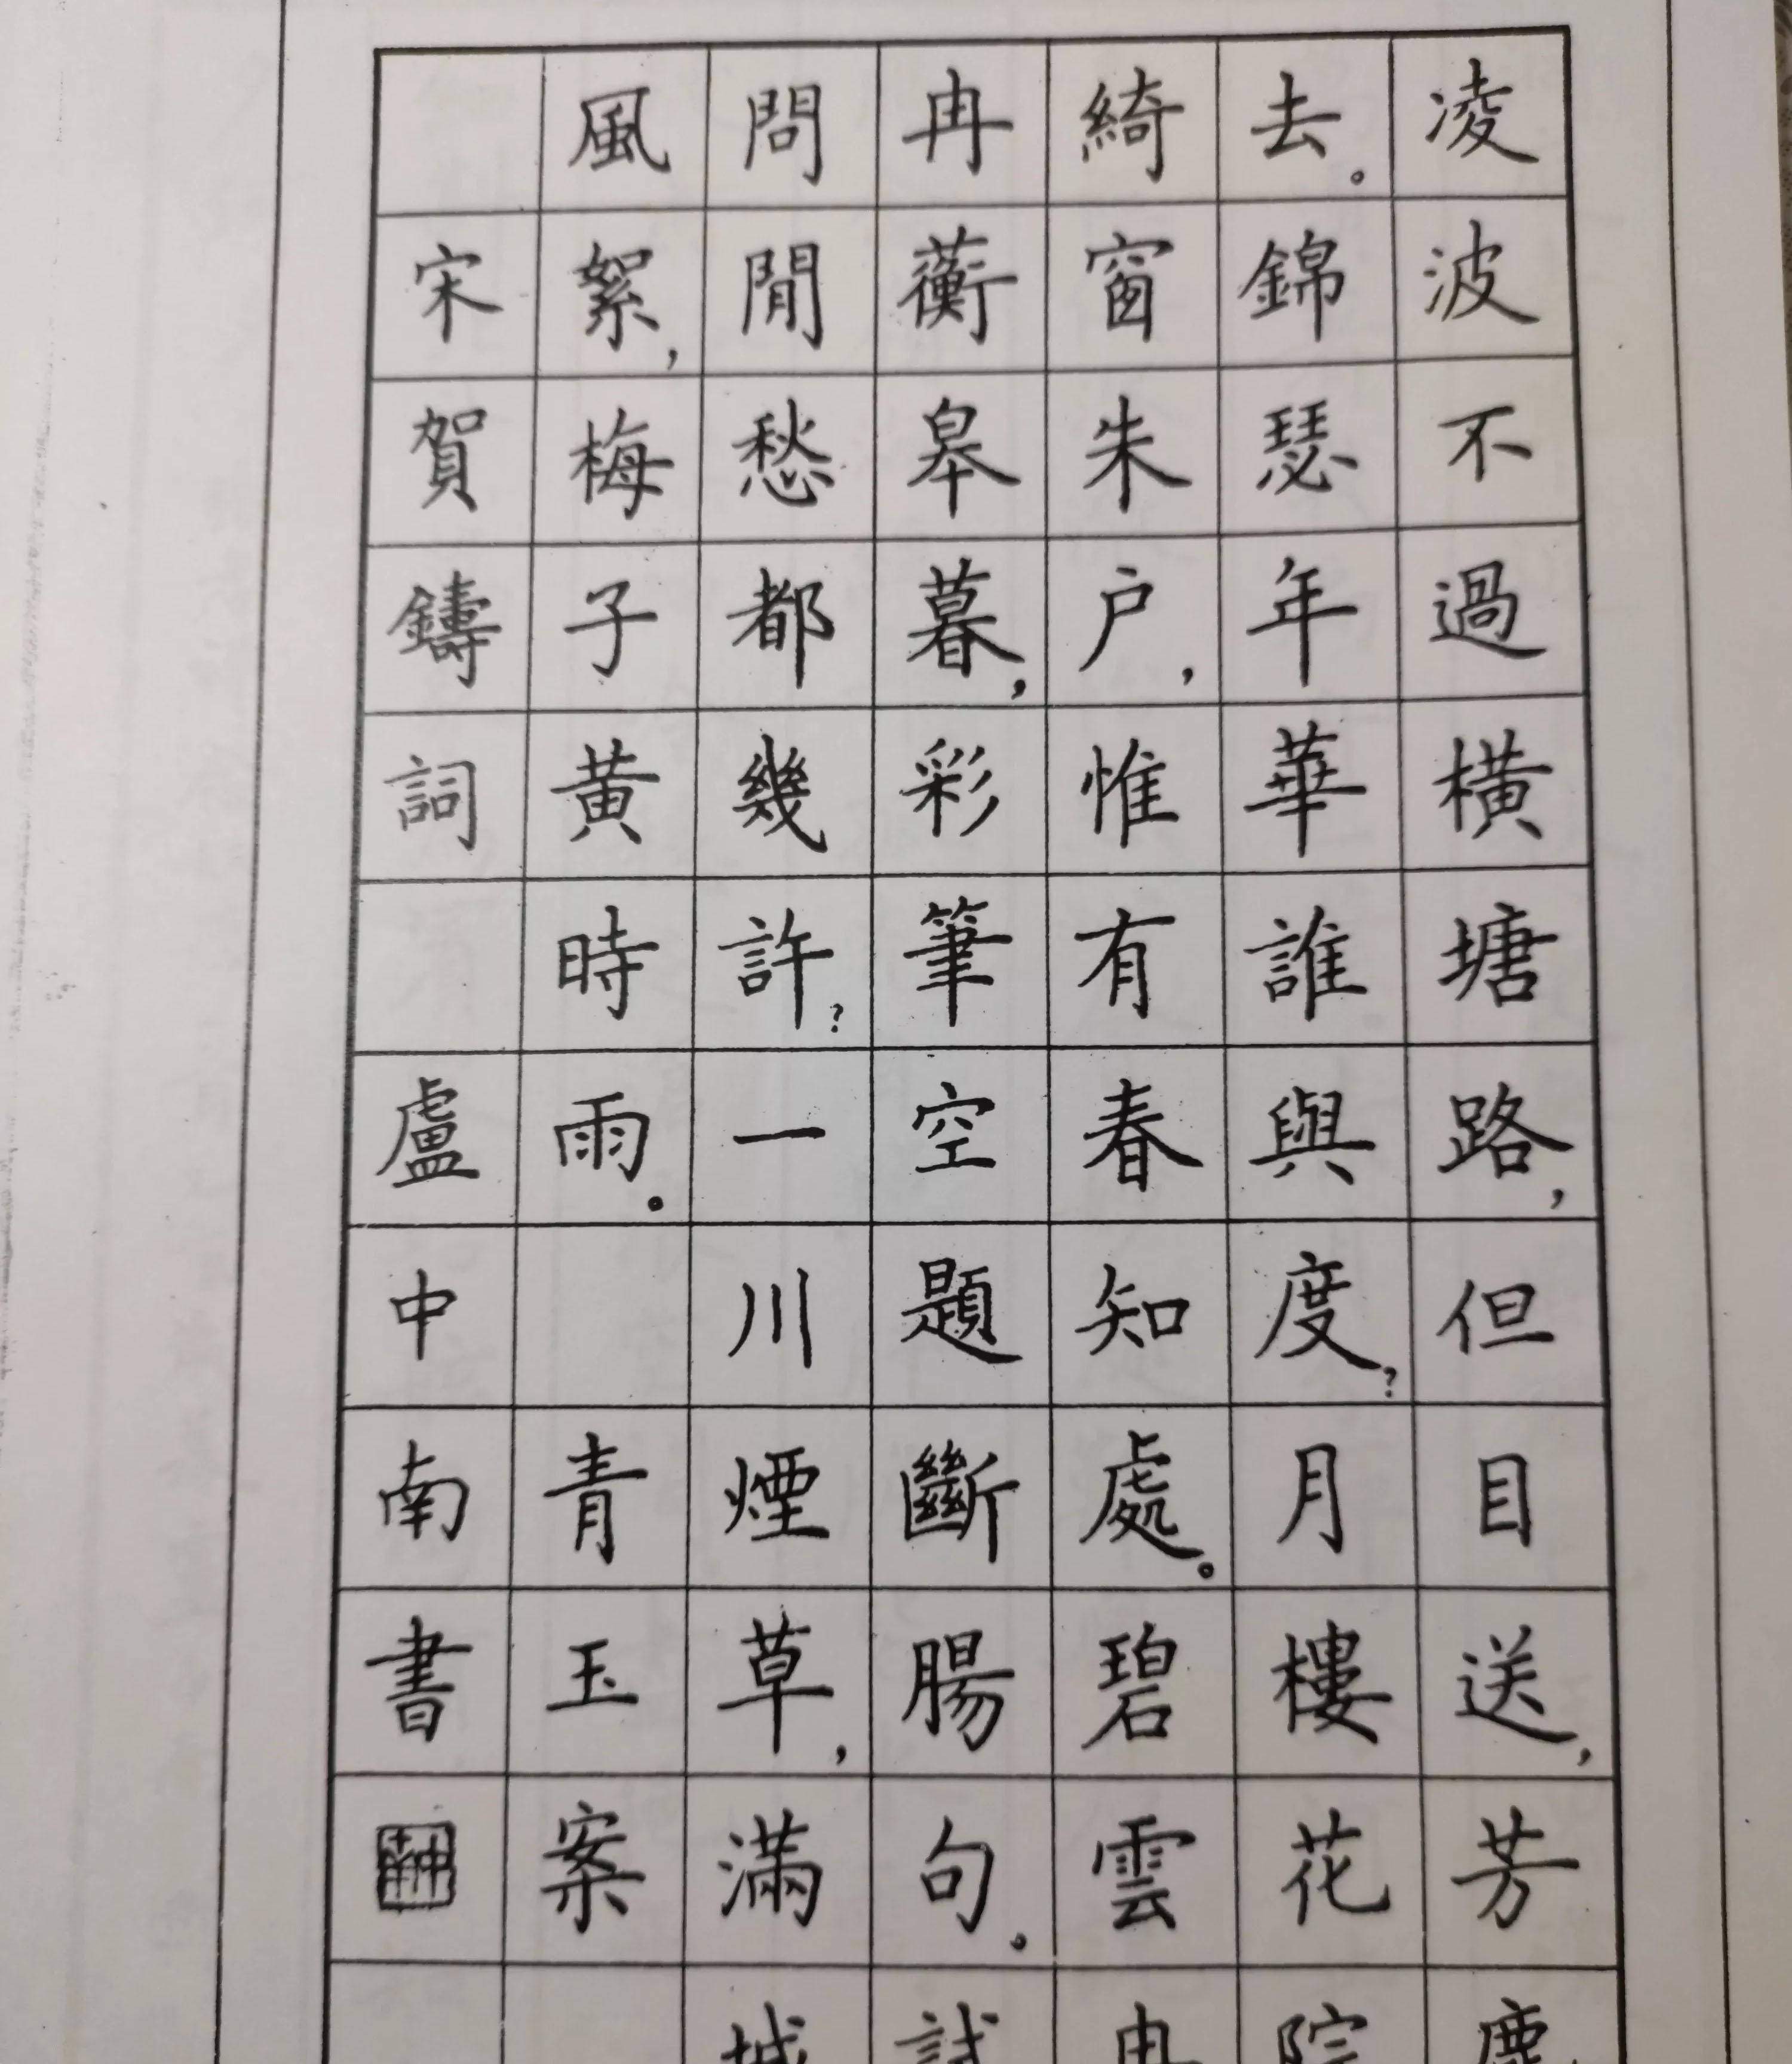 凌波不過橫塘路，但目送，芳塵
去。錦瑟年華誰與度？月樓花院
綺窗朱户，惟有春知處。碧雲冉
冉蘅皋暮，彩筆空題斷腸句。試
問閒愁都幾許？一川煙草，滿城
風絮，梅子黃時雨。 青玉案
宋賀鑄詞 盧中南書
中南